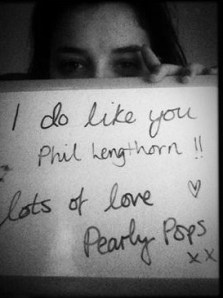 I do like you
Phil Lengthorn !!
lots of love ♡
Pearly Pops
xx